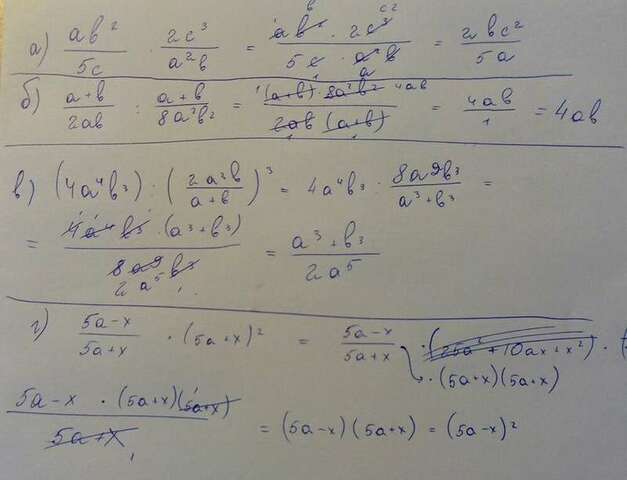 а) ab²/5c · 2c³/a²b = ab² · 2c³/5c · a²b = 2bc²/5a
б) a+b/2ab : a+b/8a²b² = (a+b) · 8a²b² 4ab/2ab (a+b) = 4ab/1 = 4ab
в) (4a⁴b³) : (2a³b/a+b)³ = 4a⁴b³ : 8a⁹b³/a³+b³ =
= 4a⁴b³ · (a³+b³)/8a⁹b³ 2a⁵ = a³+b³/2a⁵
г) 5a-x/5a+x · (5a+x)² = 5a-x/5a+x · (25a²+10ax+x²) · (
· (5a+x)(5a+x)
5a-x · (5a+x)(5a+x)/5a+x = (5a-x)(5a+x) = (5a-x)²